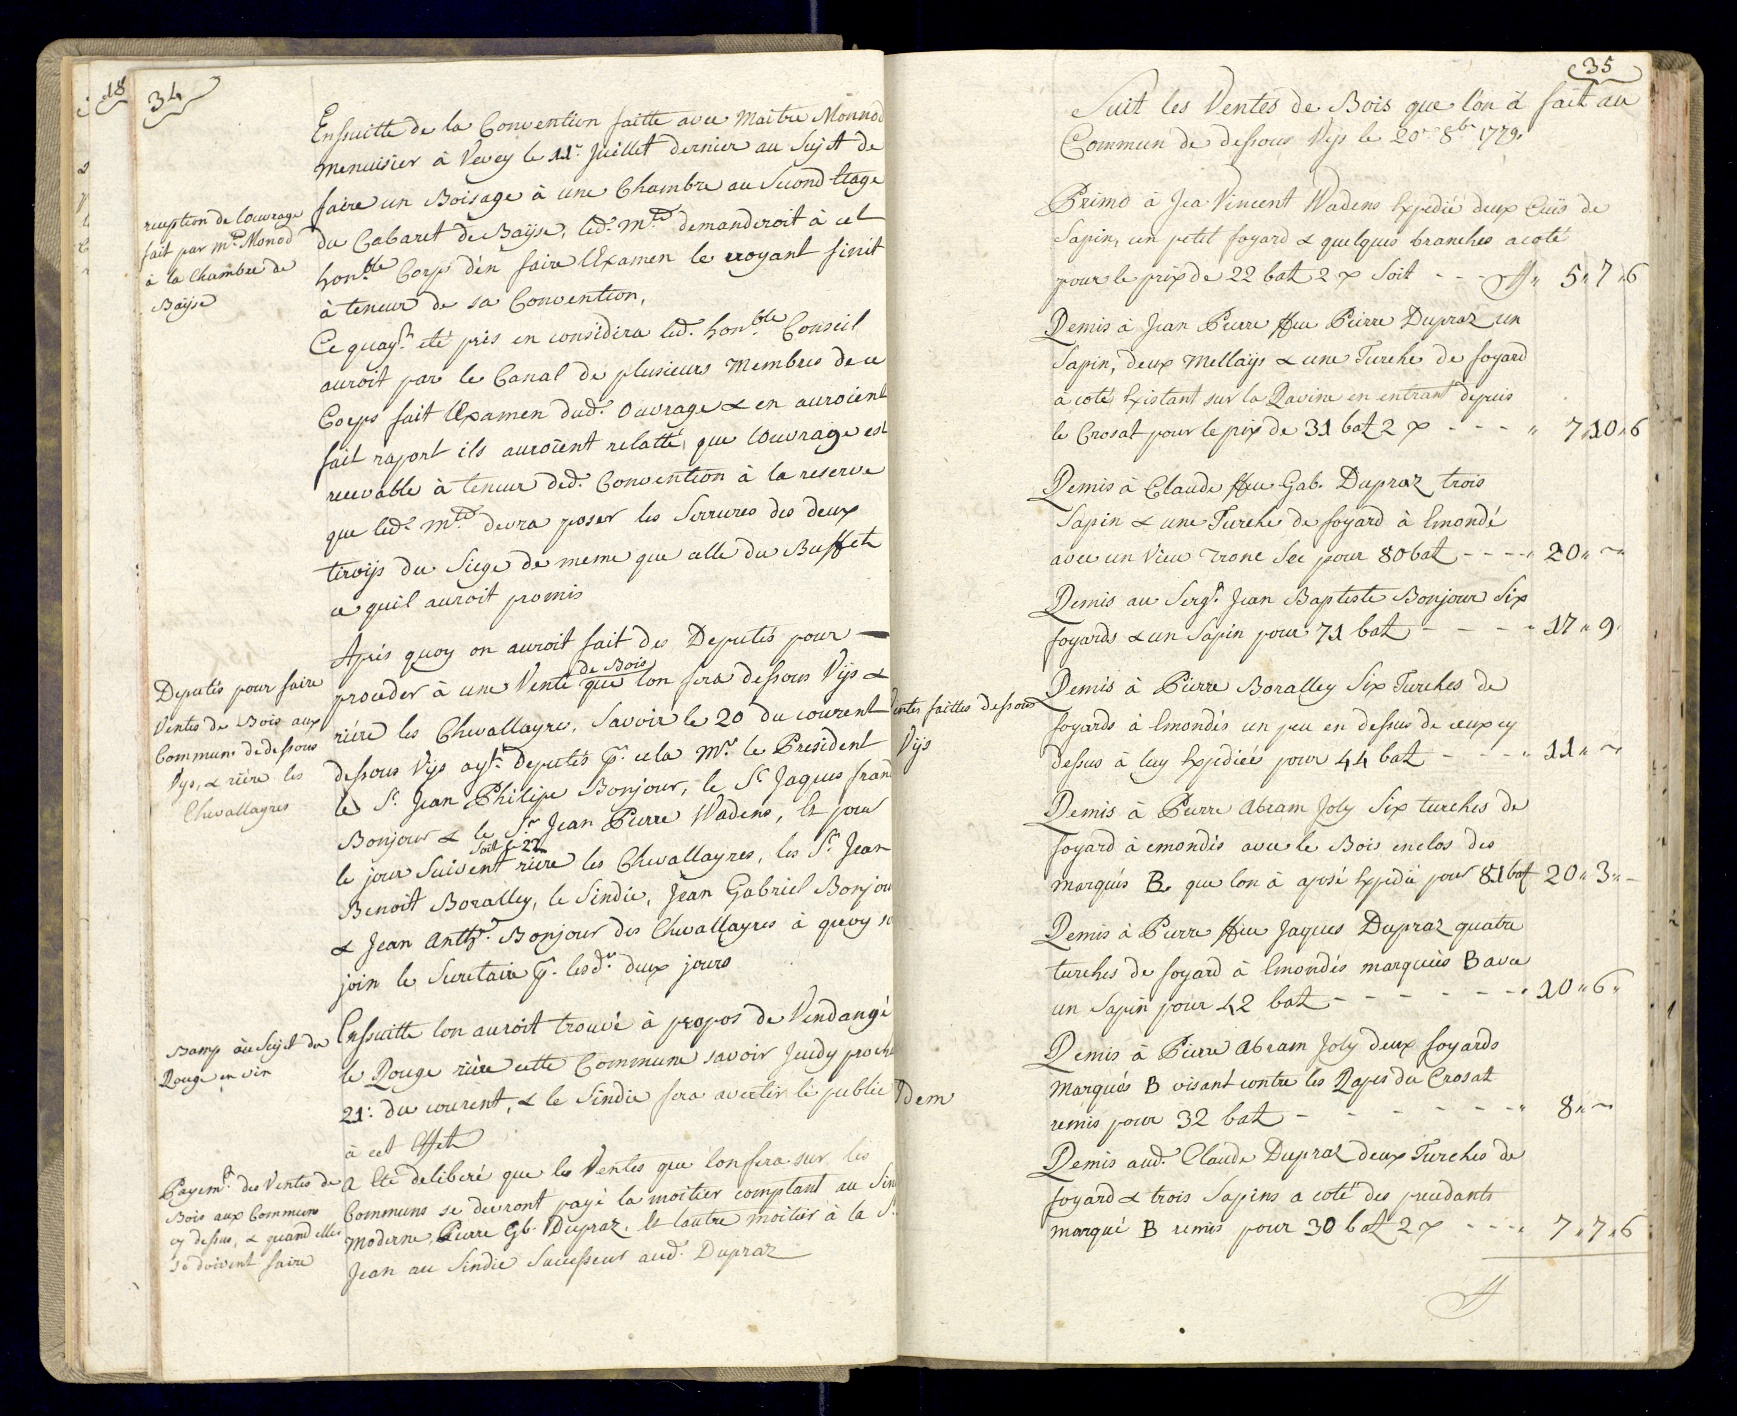 18
34
reception de louvrage
fait par mtre Monod
à la Chambre de
Baÿse
Ensuitte de la Convention faitte avec Maitre Monnod
menuisier à Vevey le 11e Juillet dernier au Sujet de
faire un Boisage à une Chambre au Second Etage
du Cabaret de Baÿse, led. mtre demanderoit à cet
honble Corps d'en faire l'Examen le croyant finit
à teneur de sa Convention,
Ce quayt eté pris en considera led. honble Conseil
auroit par le Canal de plusieurs Membres de ce
Corps fait lExamen dud. Ouvrage & en auroient
fait raport ils auroient relatté, que louvrage est
recevable à teneur ded. Convention à la reserve
que led. mtre devra poser les Serrures des deux
tiroijs du Siege de meme que celle du Buffet
ce quil auroit promis
Deputés pour faire
Ventes de Bois aux
Communs de dessous
Vijs, & riére les
Chevallayres
Aprés quoy on auroit fait des Deputés pour
de Bois
proceder à une Vente que lon fera dessous Vijs &
riére les Chevallayres, Savoir le 20 du courent
dessous Vijs ayt. Deputés pr. cela Mr. le President
le Sr. Jean Philipe Bonjour, le Sr. Jaques fran
Bonjour & le Sr. Jean Pierre Wadens, Et pour
Soit le 22
le jour Suivent riére les Chevallayres, les Sr. Jean
Benoit Boralley, le Sindic, Jean Gabriel Bonjou
& Jean Anthe. Bonjour des Chevallayres à quoy se
join le Secretaire pr. lesd. deux jours
Bamp au Sujet du
Rouge en vin
Ensuitte lon auroit trouvé à propos de Vendangé
le Rouge riére cette Commune savoir Jeudy proche
21e. du courent, & le Sindic fera avertir le public
à cet Effet
Payemt. des Ventes de
Bois aux Communs
cy dessus, & quand elles
se doivent faire
A Eté deliberé que les Ventes que lon fera sur les
Communs se devront payé la moitier comptant au Sin
moderne, Pierre Gb. Dupraz, Et lautre moitiér à la St.
Jean au Sindic Successeur aud. Dupraz
35
Suit les Ventes de Bois que lon à fait au
Commun de dessous Vijs le 20e 8bre 1779.
entes faittes dessous
Vijs
Primo à Jea Vincent Wadens Expedié deux Cuïs de
Sapin, un petit foyard & quelques branches a coté
pour le prix de 22 batz 2 x Soit - - - ff " 5 " 7 " 6
Remis à Jean Pierre ffeu Pierre Dupraz un
Sapin, deux Mellaijs & une Turche de foyard
à coté Existant sur la Ravine en entrant depuis
le Crosat pour le prix de 31 batz 2 x - - - " 7 " 10 " 6
Remis à Claude ffeu Gab. Dupraz trois
Sapin & une Turche de foyard à Emondé
avec un vieu Tronc Sec pour 80 batz - - - - " 20 " ~ "
Remis au Sergt. Jean Baptiste Bonjour Six
foyards & un Sapin pour 71 batz - - - - " 17 " 9
Remis à Pierre Boralley Six Turches de
foyards à Emondés un peu en dessus de ceux cy
dessus à luy Expediée pour 44 batz - - - - " 11 " ~
Remis à Pierre Abram Joly Six turches de
foyard à emondés avec le Bois enclos des
marqués B. que lon à aposé Expedié pour 81 batz 20 " 3 " -
Remis à Pierre ffeu Jaques Dupraz quatre
turches de foyard à Emondés marqués B avec
un Sapin pour 42 batz - - - - - - - " 10 " 6 "
dem
Remis à Pierre Abram Joly deux foyards
Marqués B visant contre les Rapes du Crosat
remis pour 32 batz - - - - - - - " 8 " ~
Remis aud. Claude Dupraz deux Turches de
foyard & trois Sapins a coté des precedants
marqué B remis pour 30 batz 2 x - - - " 7 " 7 " 6
ff